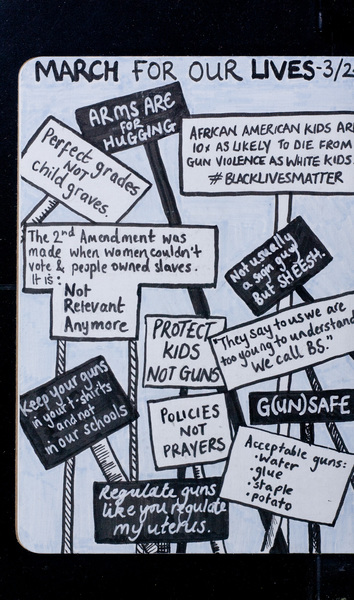 MARCH FOR OUR LIVES-3/2
ARMS ARE
FOR
HUGGING
Perfect grades
Not
child graves.
AFRICAN AMERICAN KIDS ARE
10x AS LIKELY TO DIE FROM
GUN VIOLENCE AS WHITE KIDS.
#BLACKLIVESMATTER
The 2nd Amendment was
made when women couldn't
vote & people owned slaves.
It is:
Not
Relevant
Anymore
Not usually
a sign guy
But SHEESH.
PROTECT
KIDS
NOT GUNS
"They say to us we are
too young to understand
We call BS."
Keep your guns
in your t-shirts
and not
in our schools
POLICIES
NOT
PRAYERS
G(UN)SAFE
Acceptable guns:
•water
•glue
•staple
•potato
Regulate guns
like you regulate
my uterus.